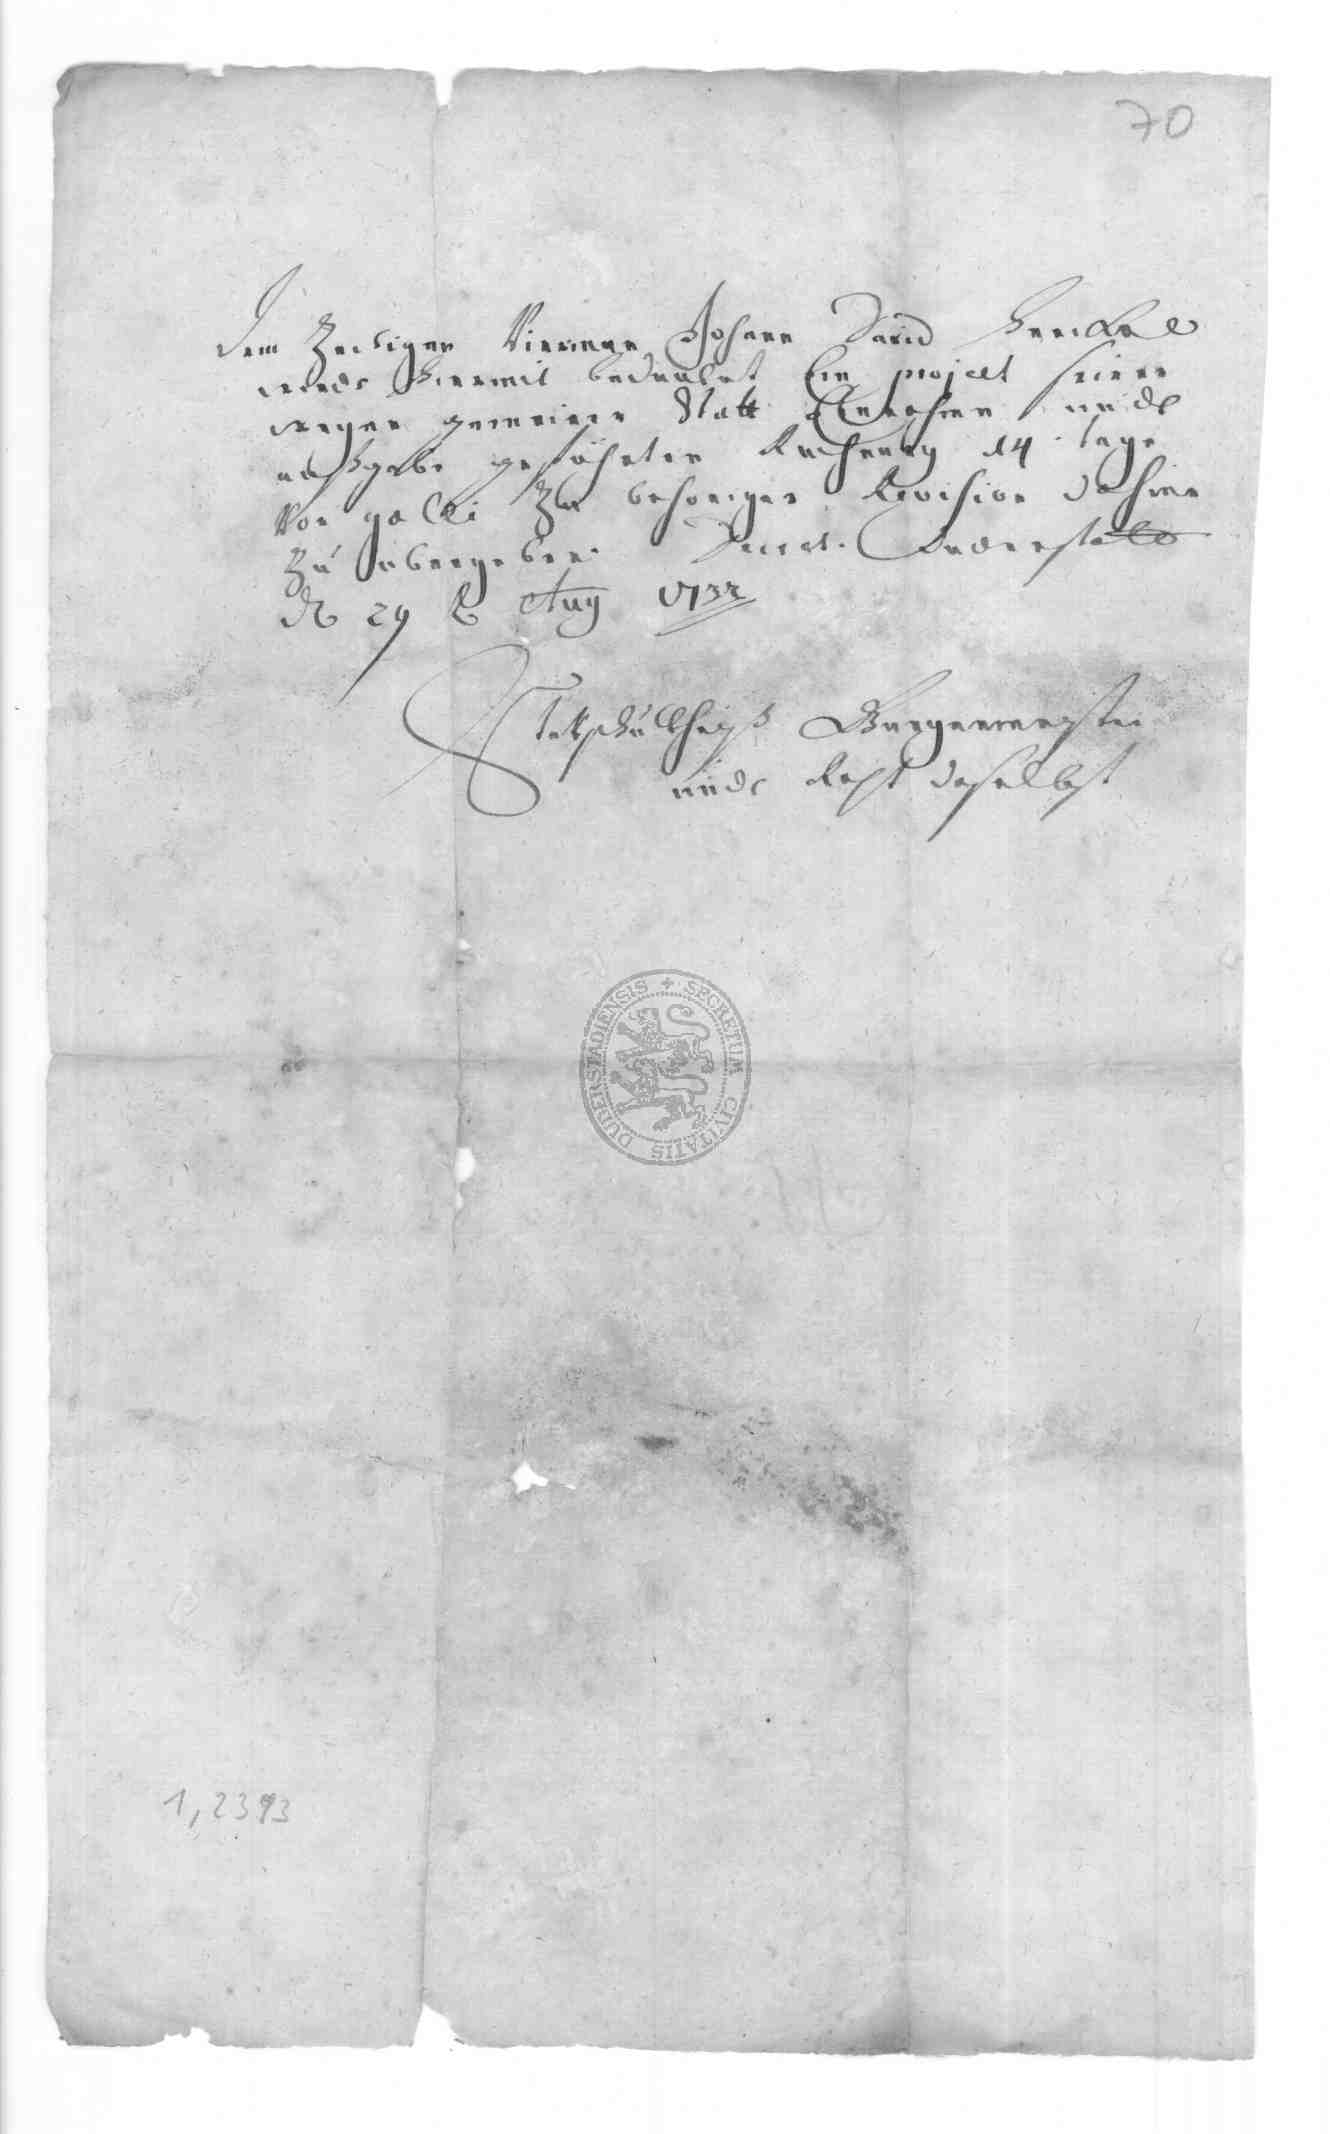 70
Dem Zeitigen Vierman Johann David
wirdt hiermit bedeutet Ein project seiner
wegen gemeiner Statt Einnahm undt
außgabe geführten Rechnung 14 tage
Vor galli Zu behöriger Revision dahier
Zu übergeben. Decret. Duderstatt
d 29 t Aug 1732
Stattschultheiß Burgermeister
undt Raht daselbst
SECRETUM CIVITATIS DUDERSTADIENSIS
1,2393